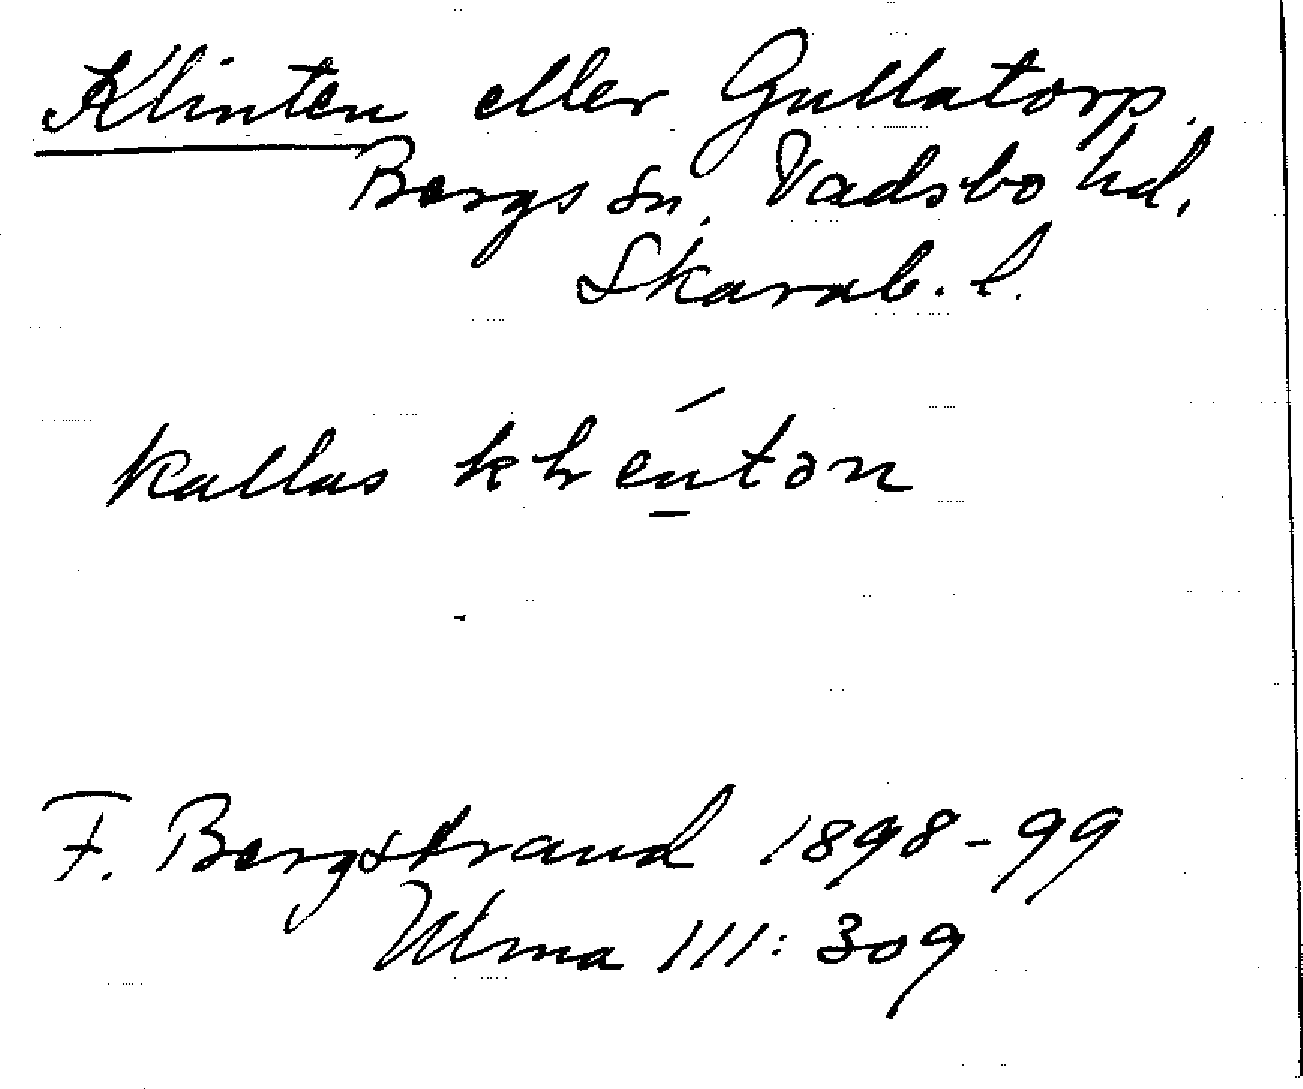 Klinten eller Gullatorp.
Bergs sn, Vadsbo hd,
Skarab. l.
kallas
F. Bergstrand 1898-99
Ulma 111: 309